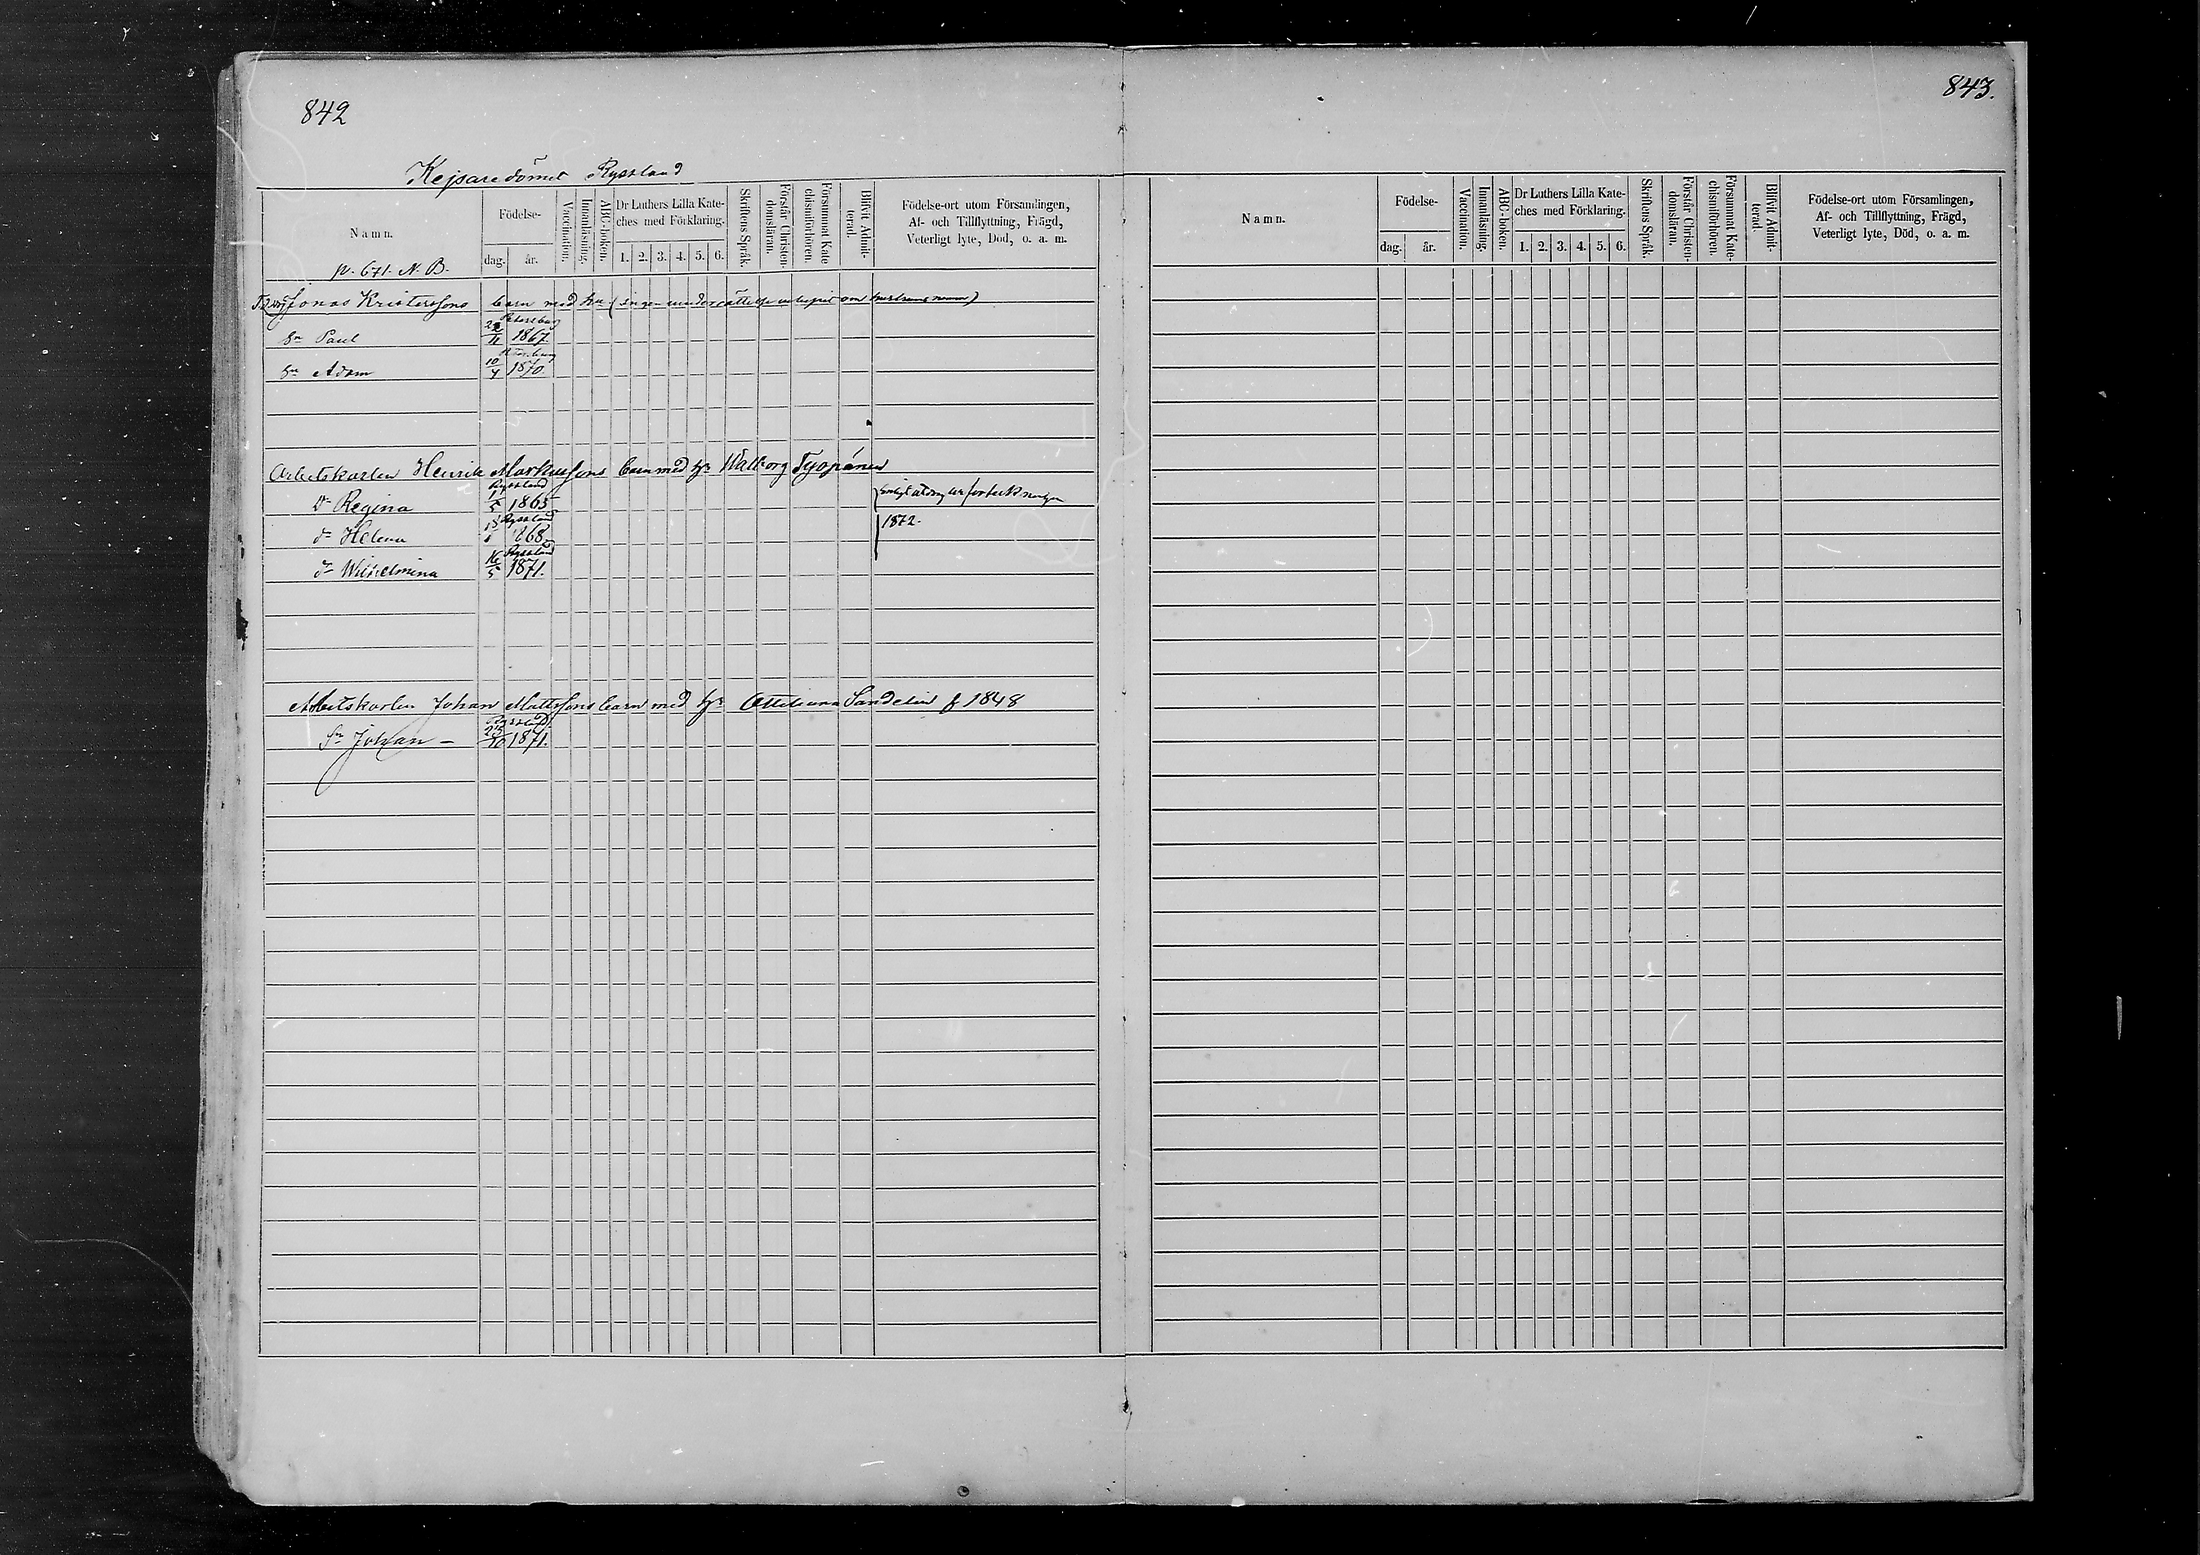 842
843.
Kejsaredömet Ryssland
Namn.
Födelse-
dag. år.
Vaccination.
Innanläsning.
ABC-boken.
Dr Luthers Lilla Kate-
ches med Förklaring.
1. 2. 3. 4. 5. 6.
Skriftens Språk.
Förstår Christen-
domsläran.
Försummat Kate
chismiförhören.
Blifvit Admit-
terad.
Födelse-ort utom Församlingen,
Af- och Tillflyttning, Frägd,
Veterligt lyte, Död, o. a. m.
p. 671. N. B.
Jonas Kristerssons barn med hu (ingen underrättelse om hustruns namn)
Petersburg
Sn Paul 1867.
Sn Adam 10/7 1870.
Arbetskarlen Henrik Markussons barn med hu Walborg Tyopónen
Ryssland
Dr Regina 1/5 1865
Ryssland
dr Helena 1868
Ryssland
dr Wilhelmina 16/5 1871.
1872.
Arbetskarlen Johan Mattssons barn med hu Ottiliana Sandelin f 1848
Ryssland
Sn Johan – 23/10 1871.
Namn.
Födelse-
dag. år.
Vaccination.
Innanläsning.
ABC-boken.
Dr Luthers Lilla Kate-
ches med Förklaring.
1. 2. 3. 4. 5. 6.
Skriftens Språk.
Förstår Christen-
domsläran.
Försummat Kate-
chismiförhören.
Blifvit Admit-
terad.
Födelse-ort utom Församlingen,
Af- och Tillflyttning, Frägd,
Veterligt lyte, Död, o. a. m.